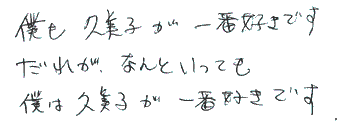 僕も 久美子が 一番好きです
だれが、なんといっても
僕は 久美子が 一番好きです